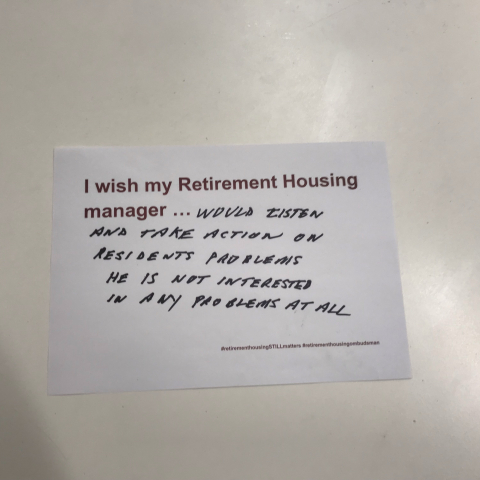 I wish my Retirement Housing
manager ... WOULD LISTEN
AND TAKE ACTION ON
RESIDENTS PROBLEMS
HE IS NOT INTERESTED
IN ANY PROBLEMS AT ALL
#retirementhousingSTILLmatters #retirementhousingombudsman